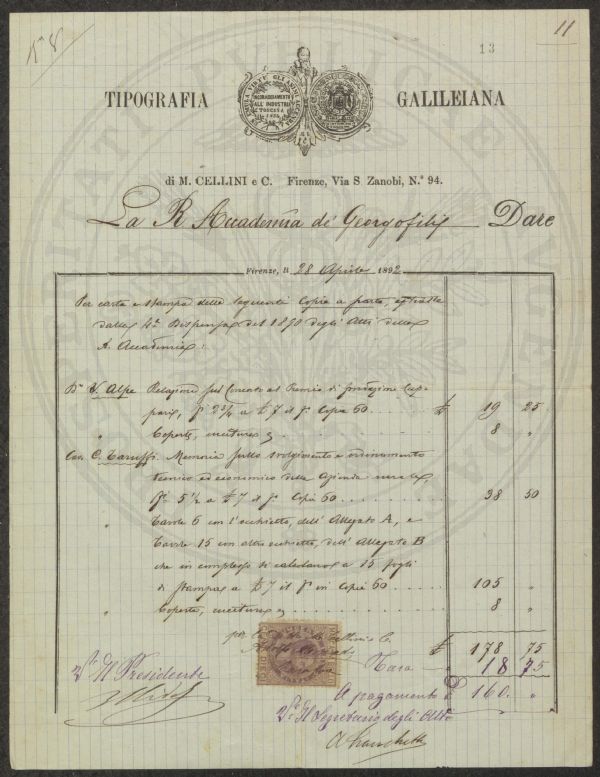 11
13
TIPOGRAFIA GALILEIANA
INCORAGGIAMENTO
ALL' INDUSTRIA
TOSCANA
di M. CELLINI e C. Firenze, Via S. Zanobi, N.° 94.
La R Accademia di Georgofili Dare
Firenze, li 28 Aprile 1892
Per carta e stampa delle seguenti Copie a parte, estratte
dalla 4ª Dispensa del 1890 degli Atti della
R. Accademia:
V. Alpe Relazione sul Concorso al Premio di fondazione Cup-
pari, f 2 3/4 a £ 7 il f Copie 50 £ 19 25
" Coperte, cucitura 8 "
Cav. C. Taruffi. Memoria sullo svolgimento e ordinamento
tecnico ed economico della Azienda rurale,
f 5 1/2 a £ 7 il f Copie 50 38 50
" Tavole 6 con l'occhietto, dell'Allegato A, e
Tavole 15 con altro occhietto, dell'Allegato B
che in complesso si calcolano a 15 fogli
di stampa a £ 7 il f in Copie 50 105 "
" Coperte, cucitura 8 "
£ 178 75
Tara 18 75
V° Il Presidente
A pagamento £ 160. "
V° Il Segretario degli Atti